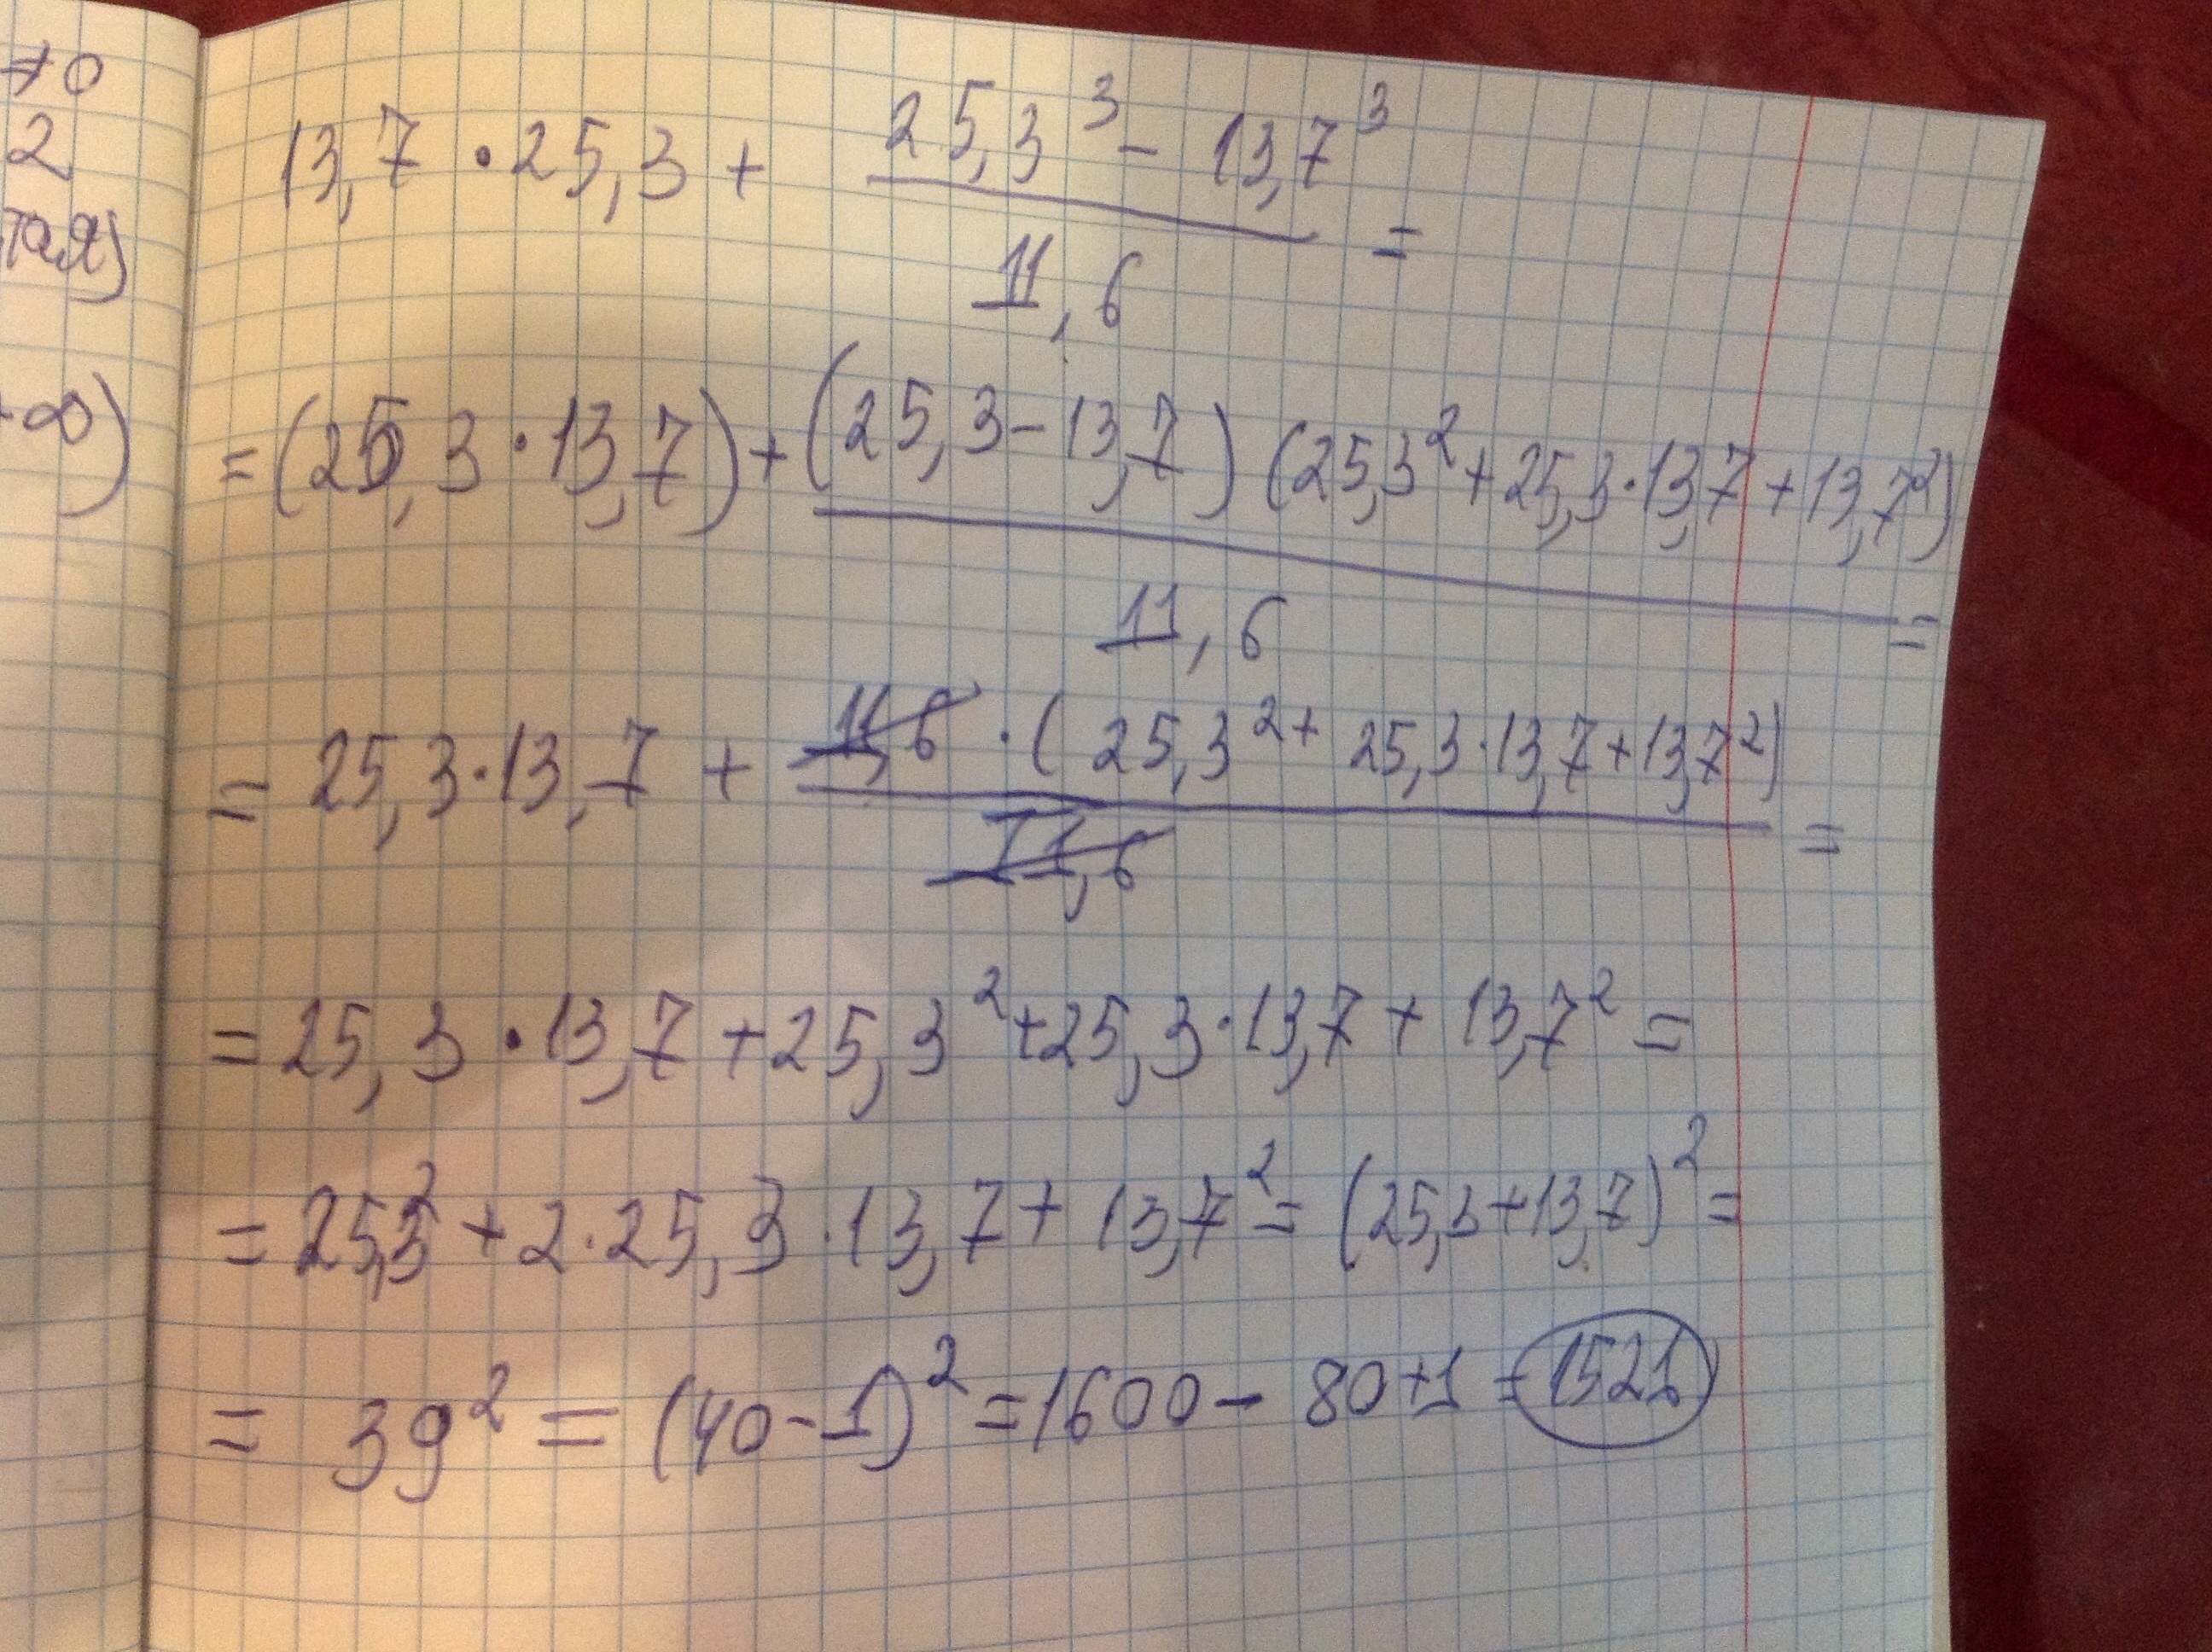 ≠0
2
тая)
+∞)
13,7 · 25,3 + 25,3³ - 13,7³ =
11,6
= (25,3 · 13,7) + (25,3 - 13,7) (25,3² + 25,3 · 13,7 + 13,7²)
11,6 =
= 25,3 · 13,7 + 11,6 · (25,3² + 25,3 · 13,7 + 13,7²) =
11,6
= 25,3 · 13,7 + 25,3² + 25,3 · 13,7 + 13,7² =
= 25,3² + 2 · 25,3 · 13,7 + 13,7² = (25,3 + 13,7)² =
= 39² = (40 - 1)² = 1600 - 80 + 1 = 1521